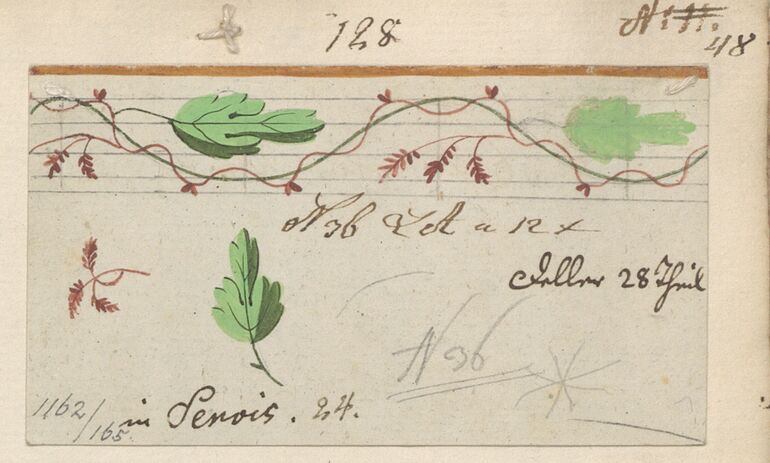 128
48
N 36 Lit a 12 x
Teller 28 Theil
N 36
1162/165
in Servis. 24.